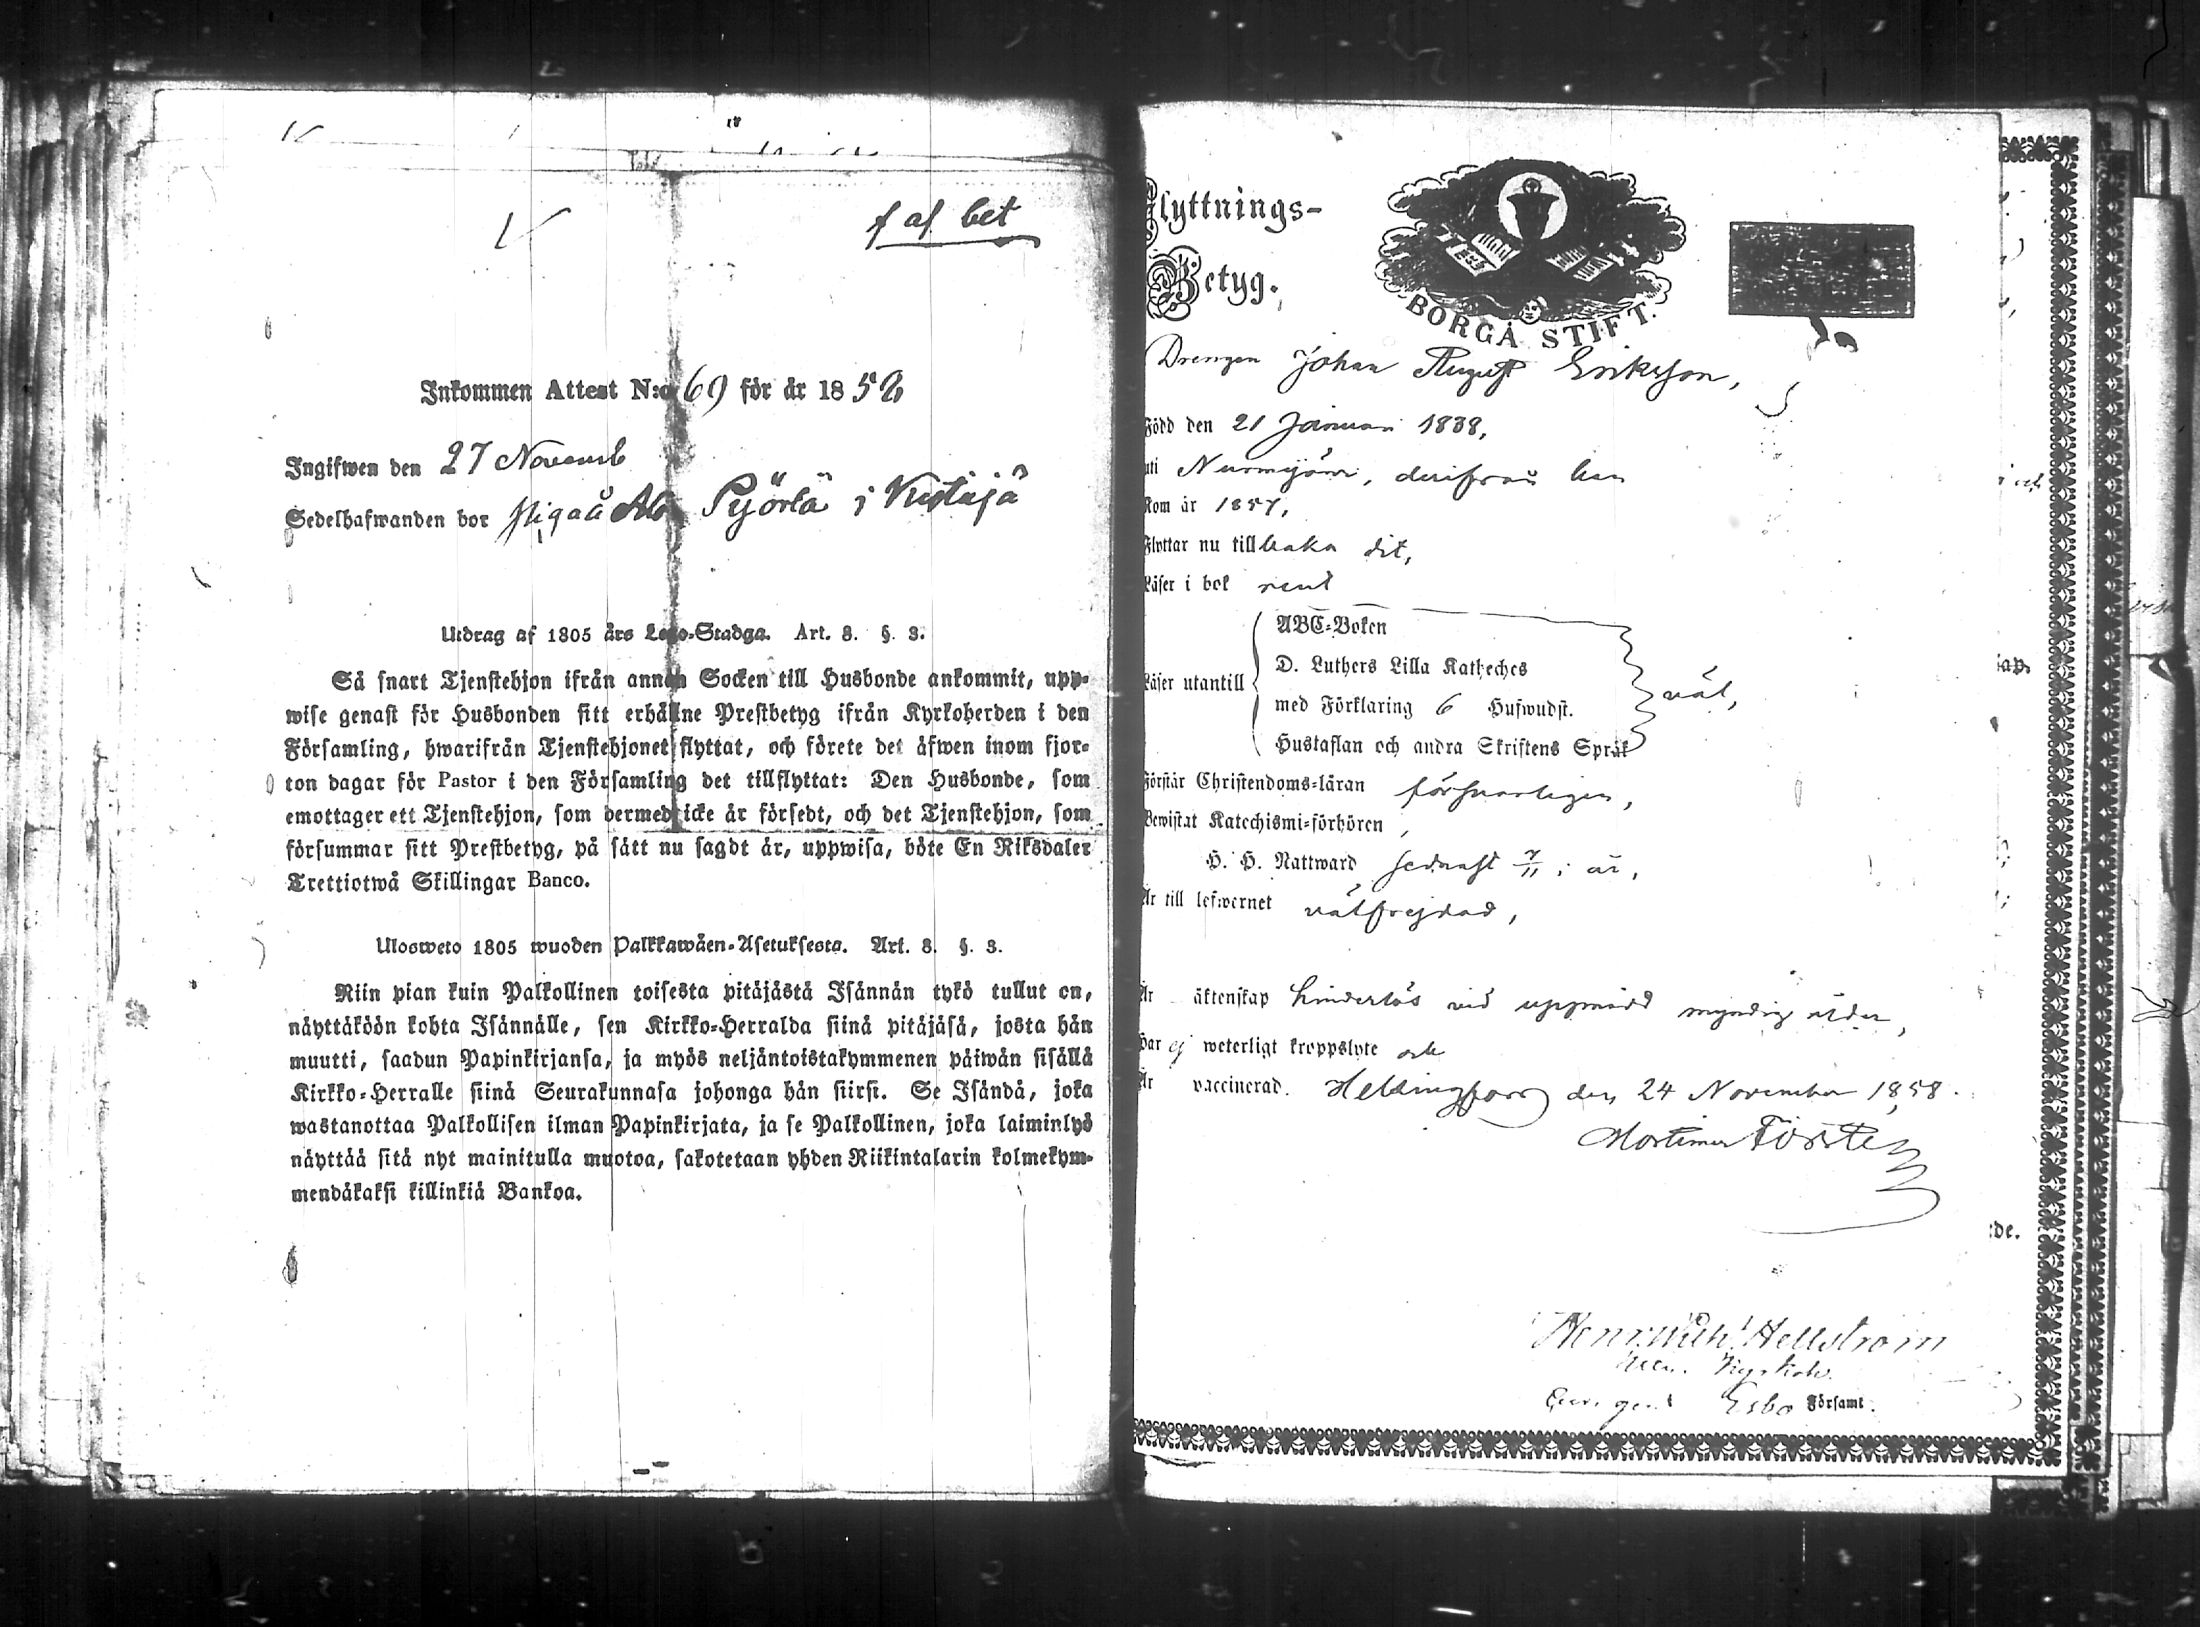 f af bet
Inkommen Attest N:o 69 för år 1858
Ingifwen den 27 Novemb
Sedelhafwanden bor Pyörlä i
Utdrag af 1805 års Lego-Stadga. Art. 8. §. 3.
Så snart Tjenstehjon ifrån annan Socken till Husbonde ankommit, upp-
wise genast för Husbonden sitt erhållne Prestbetyg ifrån Kyrkoherden i den
Församling, hwarifrån Tjenstehjonet flyttat, och förete det äfwen inom fjor-
ton dagar för Pastor i den Församling det tillflyttat: Den Husbonde, som
emottager ett Tjenstehjon, som dermed icke är försedt, och det Tjenstehjon, som
försummar sitt Prestbetyg, på sätt nu sagdt är, uppwisa, böte En Riksdaler
Trettiotwå Skillingar Banco.
Ulosweto 1805 wuoden Palkkawäen-Asetuksesta. Art. 8. §. 3.
Niin pian kuin Palkollinen toisesta pitäjästä Isännän tykö tullut on,
näyttäköön kohta Isännälle, sen Kirkko-Herralda siinä pitäjäsä, josta hän
muutti, saadun Papinkirjansa, ja myös neljäntoistakymmenen päiwän sisällä
Kirkko-Herralle siinä Seurakunnasa johonga hän siirsi. Se Isändä, joka
wastanottaa Palkollisen ilman Papinkirjata, ja se Palkollinen, joka laiminlyö
näyttää sitä nyt mainitulla muotoa, sakotetaan yhden Riikintalarin kolmekym-
mendäkaksi killinkiä Bankoa.
Flyttnings-
Betyg.
BORGÅ STIFT.
Drengen Johan August Eriksson,
Född den 21 Januari 1838,
uti Nurmijärvi, derifrån han
Kom år 1857,
Flyttar nu tillbaka dit,
Läser i bok rent
Läser utantill
ABC-Boken
D. Luthers Lilla Katheches
med Förklaring 6 Hufwudst.
Hustaflan och andra Skriftens Språk
väl,
Förstår Christendoms-läran försvarligen,
Bewistat Katechismi-förhören,
H. H. Nattward sednast 7/11 i år,
Är till lefwernet välfrejdad,
Är äktenskap hinderlös vid uppnådd myndig ålder,
Har ej weterligt kroppslyte och
Är vaccinerad. Helsingfors den 24 November 1858.
Mortimer Förste
Hellström
Esbo Församl.